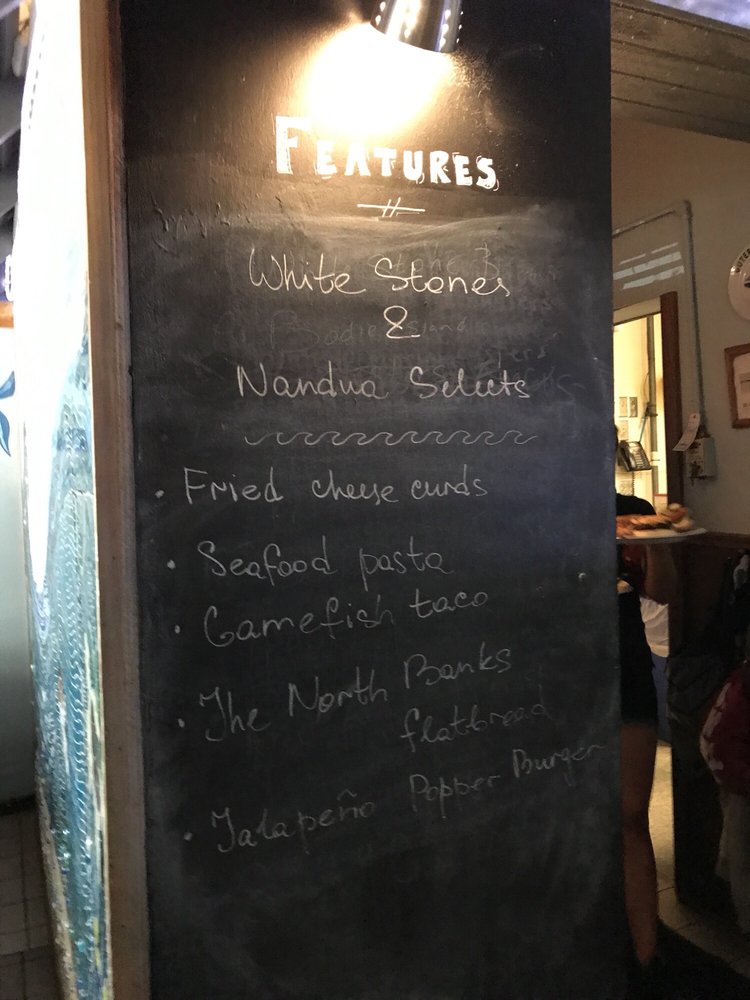 FEATURES
White Stones
&
Nandua Selects
• Fried cheese curds
• Seafood pasta
• Gamefish taco
• The North Banks
flatbread
• Jalapeño Popper Burger